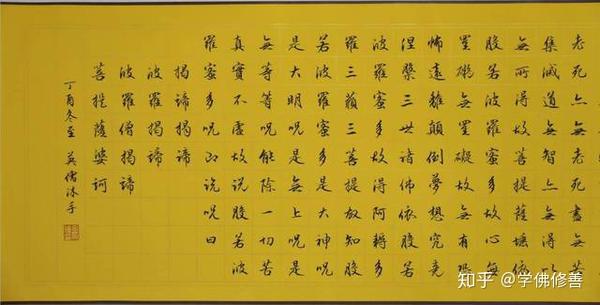 老死亦無老死盡無苦
集滅道無智亦無得以
無所得故菩提薩埵依
般若波羅蜜多故心無
罣礙無罣礙故無有恐
怖遠離顛倒夢想究竟
涅槃三世諸佛依般若
波羅蜜多故得阿耨多
羅三藐三菩提故知般
若波羅蜜多是大神咒
是大明咒是無上咒是
無等等咒能除一切苦
真實不虛故說般若波
羅蜜多咒即說咒曰
揭諦揭諦
波羅揭諦
波羅僧揭諦
菩提薩婆訶
丁酉冬至 英儒沐手
知乎 @学佛修善